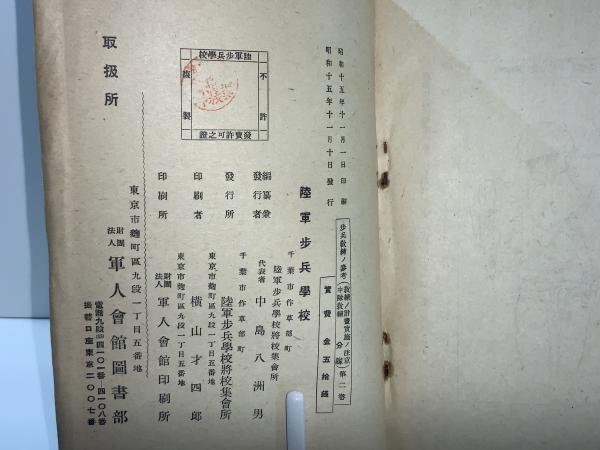 昭和十五年十一月一日印刷
昭和十五年十一月十日發行
歩兵教練ノ參考
教練ノ計畫實施ノ注意
中隊教練 分隊
第二巻
實費金五拾錢
陸軍歩兵學校
陸軍步兵學校
不許
複製
發賣許可之證
編纂兼
發行者
千葉市作草部町
陸軍步兵學校將校集會所
代表者 中島八洲男
發行所
千葉市作草部町
陸軍步兵學校將校集會所
印刷者
東京市麴町區九段一丁目五番地
橫山才四郎
印刷所
東京市麴町區九段一丁目五番地
財團法人 軍人會館印刷所
取扱所
東京市麴町區九段一丁目五番地
財團法人 軍人會館圖書部
電話九段(33)四一〇一番—四一〇八番
振替口座東京二〇〇七番